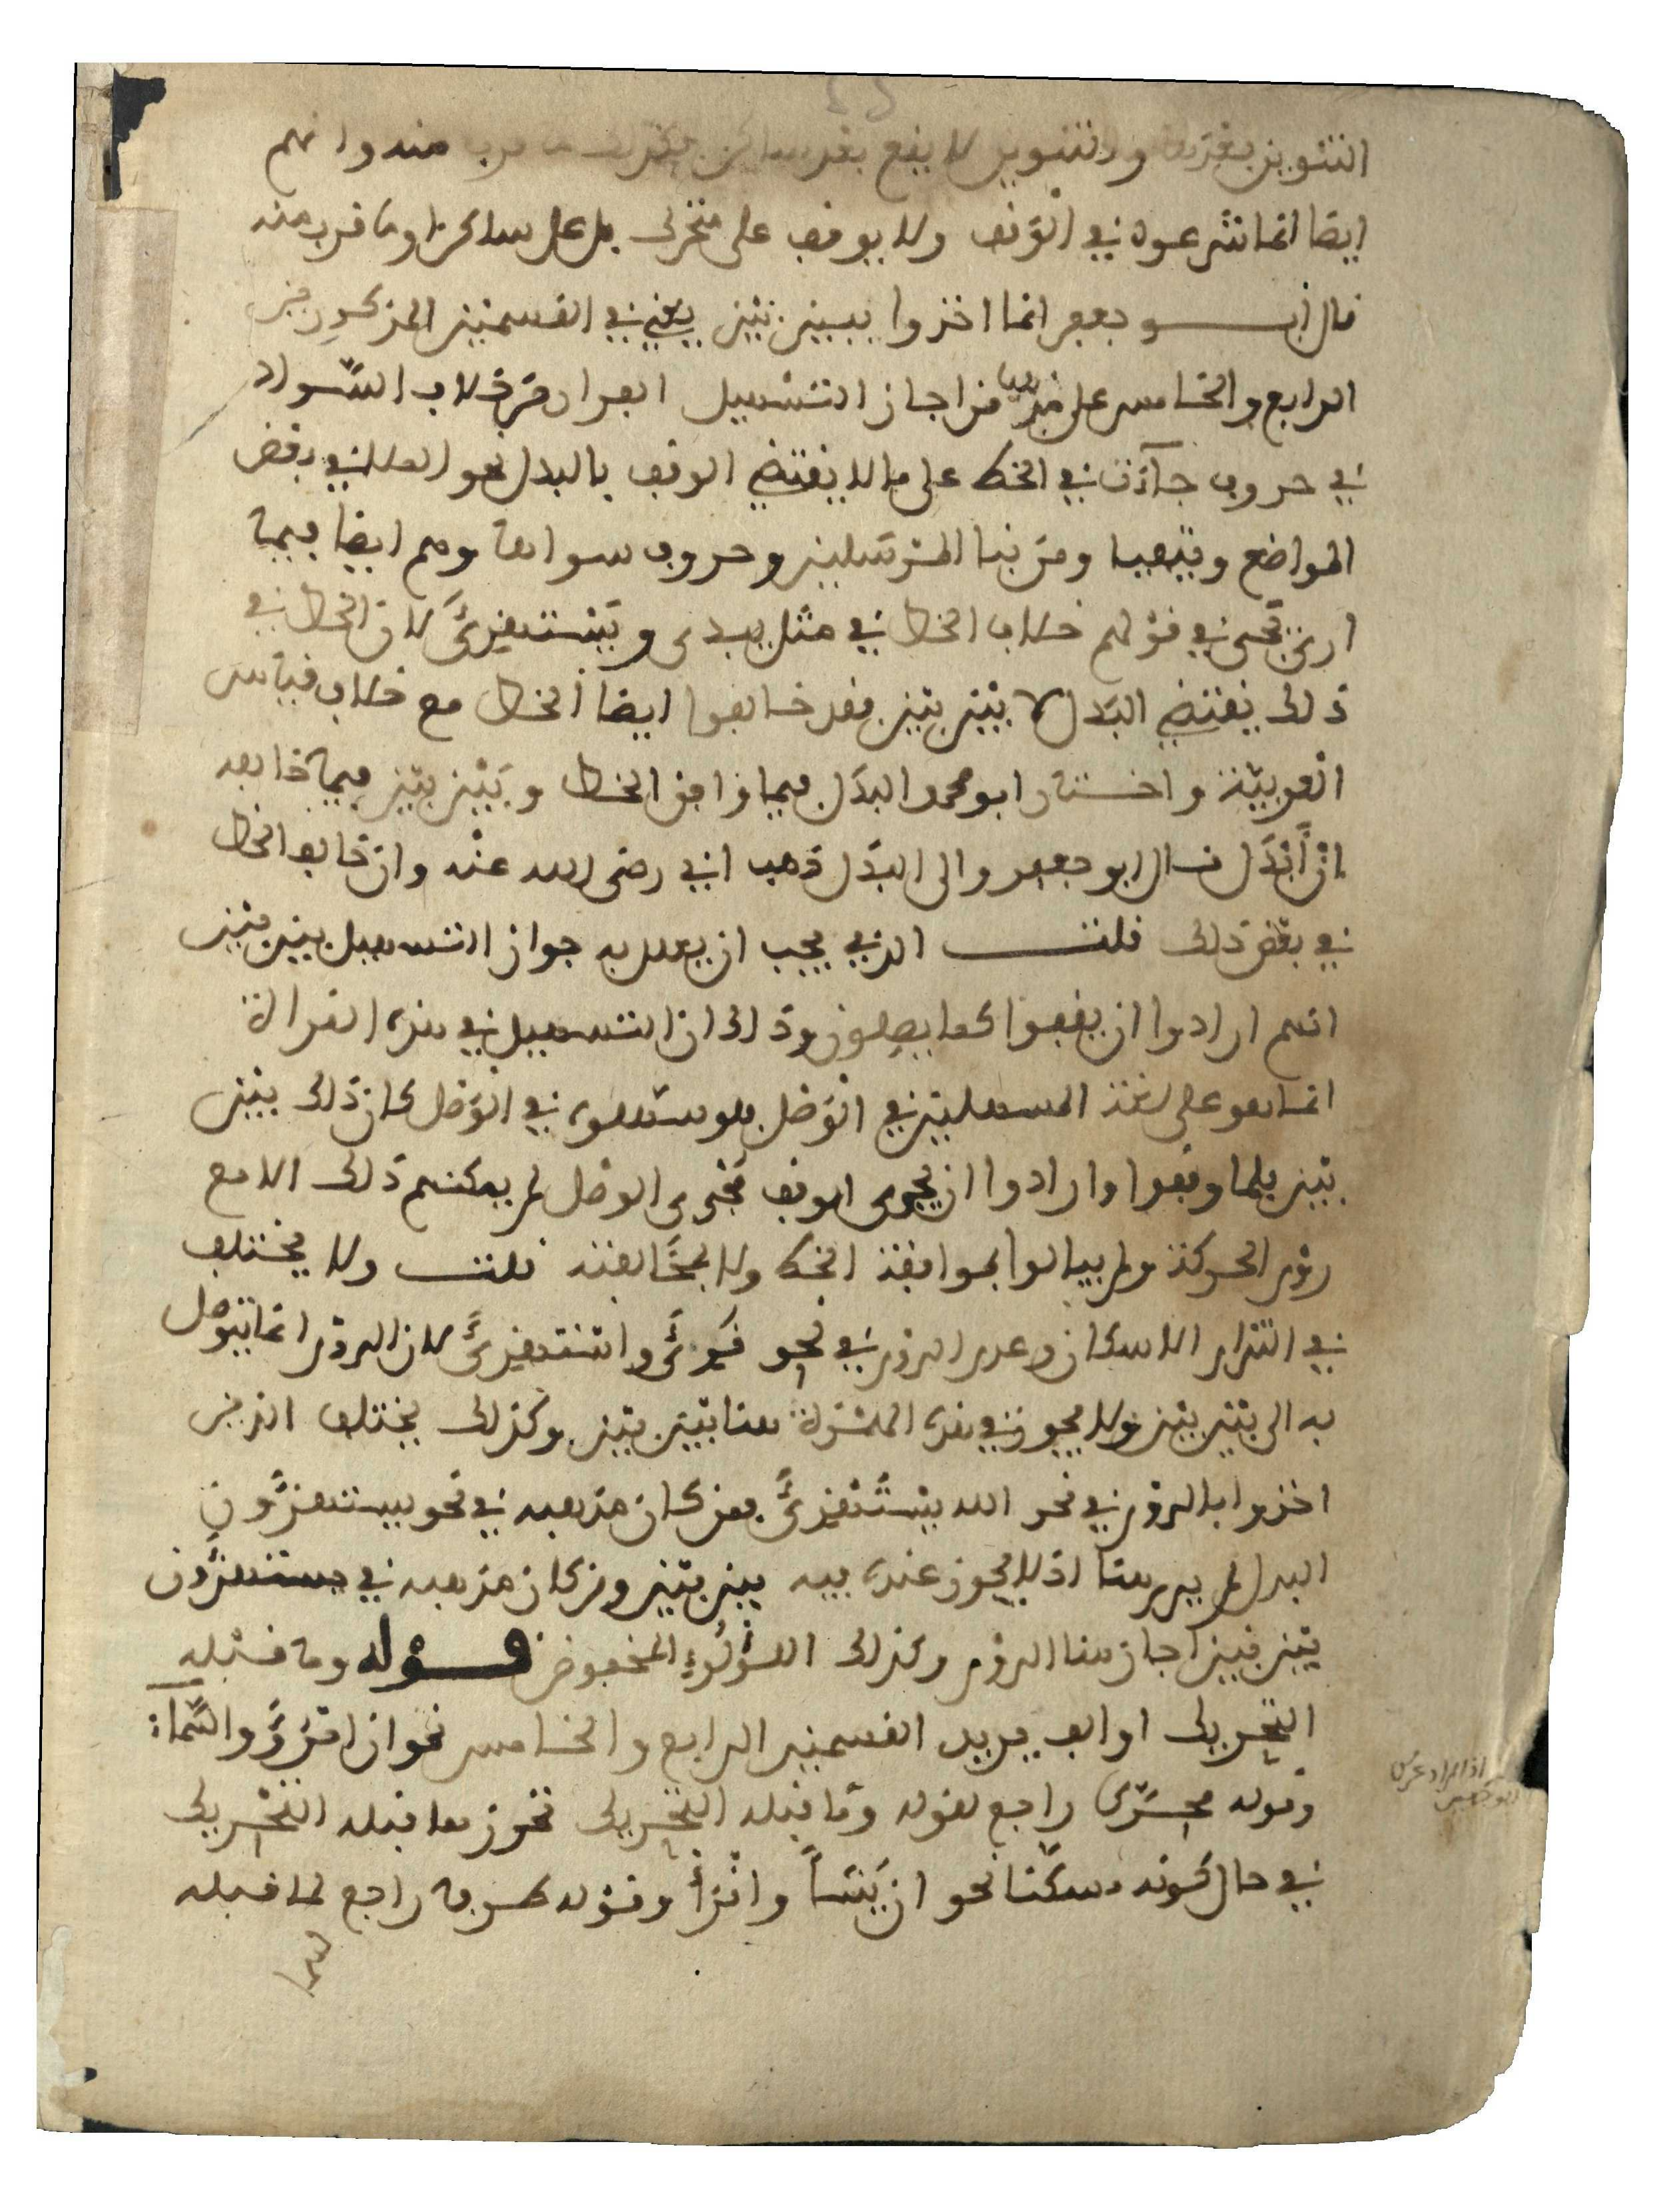 التنوين بعدها والتنوين لا يقع بعد ساكن منه وانهم
ايضا انما شرعوه في الوقف ولا يوقف على متحرك بل على ساكن او ما قرب منه
قال ابو جعفر انما اخذوا ببين بين يعني في القسمين المذكورين
الرابع والخامس على من اجاز التسهيل الفرار من خلاف السواد
في حروف جاءت في الخط على ما لا يقتضي الوقف بالبدل نحو الملا في بعض
المواضع ويتفيؤا ومن نبإ المرسلين وحروف سواها وهم ايضا فيما
ارتكبى في قولهم خلاف الخط في مثل يبدئ ويستهزئ لان الخط في
ذلك يقتضي البدل لا بين بين فقد خالفوا ايضا الخط مع خلاف قياس
العربية واختار ابو محمد البدل فيما وافق الخط وبين بين فيما خالفه
ان أبدل قال ابو جعفر والى البدل ذهب ابي رضي الله عنه وان خالف الخط
في بعض ذلك قلت الذي يجب ان يعلل به جواز التسهيل بين بين
انهم ارادوا ان يقفوا كما يصلون وذلك ان التسهيل في هذه القراءة
انما هو على لغة المسهلين في الوصل فلو سهلوه في الوصل كان ذلك بين
بين فلما وقفوا وارادوا ان يجري الوقف مجرى الوصل لم يمكنهم ذلك الا مع
روم الحركة ولم يبالوا بموافقة الخط ولا بمخالفته قلت ولا يختلف
في التزام الاسكان وعدم الروم في نحو قرئ واستهزئ لان الروم انما يتوصل
به الى بين بين ولا يجوز في هذه الهمزة هنا بين بين وكذلك يختلف الذين
اخذوا بالروم في نحو الله يستهزئ فمن كان مذهبه في نحو يستهزءون
البدل لم يرم هنا اذ لا يجوز عنده فيه بين بين ومن كان مذهبه في يستهزءون
بين بين اجاز هنا الروم وكذلك اللؤلؤ المخفوض قوله وما قبله
التحريك او الف يريد القسمين الرابع والخامس نحو ان امرؤ والسماء
وقوله محركا راجع لقوله وما قبله التحريك نحوز مما قبله التحريك
في حال كونه مسكنا نحو ان يشأ واقرأ وقوله طرفا راجع لما قبله